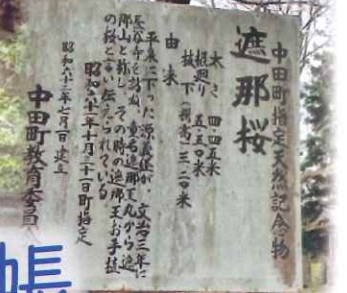 中田町指定天然記念物
遮那桜
太さ 四・四五米
根廻り 五・五〇米
枝下(樹高)一三・二〇米
由来
平泉に下った源義経が、文治三年に
長谷寺を訪ね、童名遮那王丸から遮
那山と称し、その時の遮那王お手植
の桜と言い伝えられている
昭和六十二年十月三十一日町指定
昭和六十三年七月一日建立
中田町教育委員会
帳